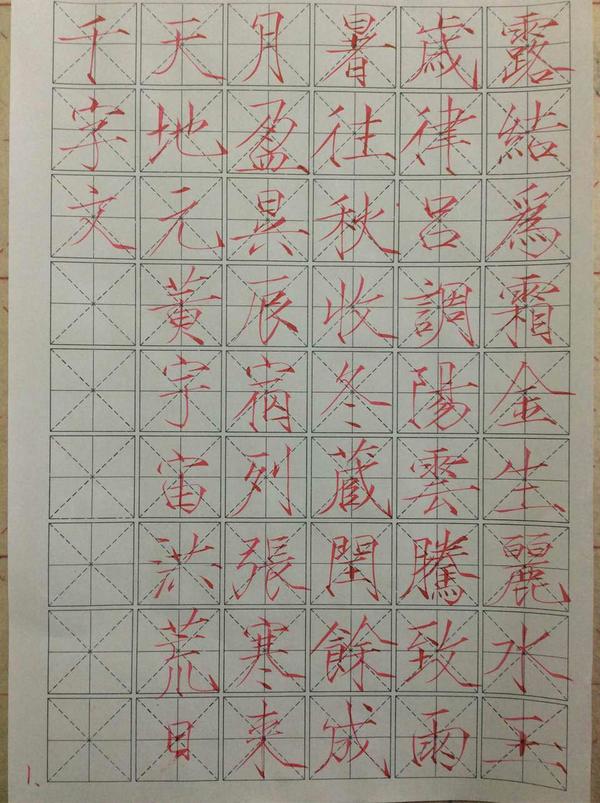 千字文
天地元黃宇宙洪荒日
月盈昃辰宿列張寒來
暑往秋收冬蔵閏餘成
歲律呂調陽雲騰致雨
露結爲霜金生麗水玉
1、